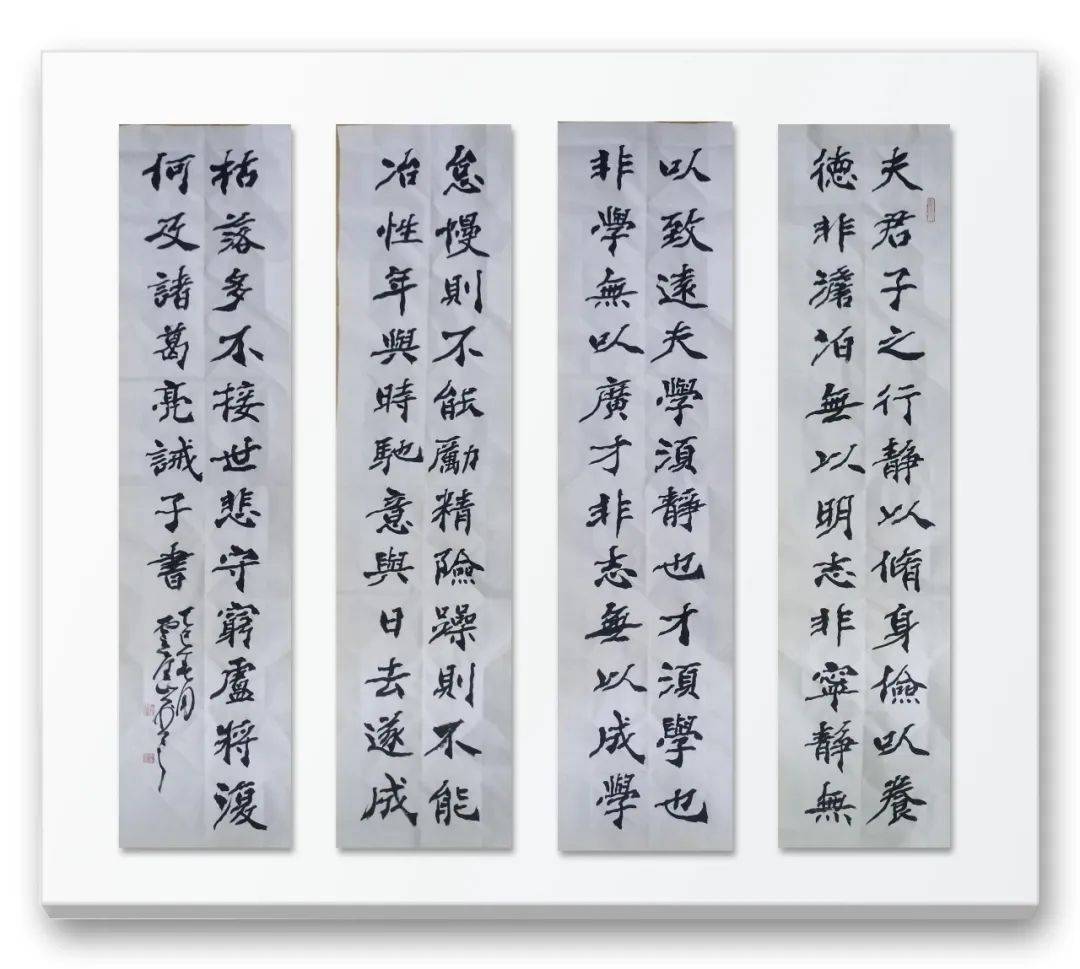 夫君子之行静以脩身檢以養
德非澹泊無以明志非寧静無
以致遠夫學須静也才須學也
非學無以廣才非志無以成學
怠慢則不能勵精險躁則不能
冶性年與時馳意與日去遂成
枯落多不接世悲守窮盧將復
何及諸葛亮誡子書
乙巳年